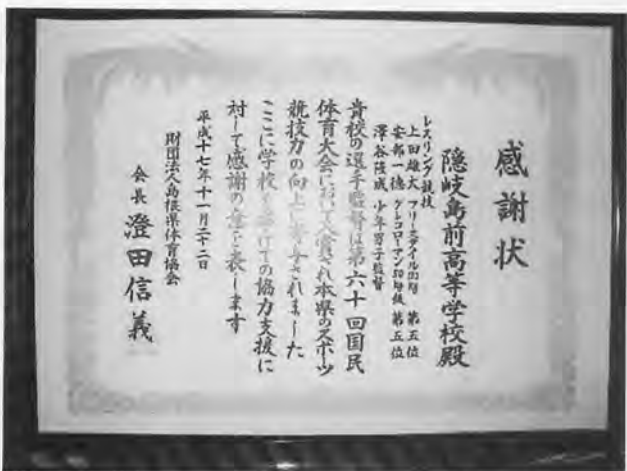 感謝状
隠岐島前高等学校殿
レスリング競技
上田雄大 フリースタイル 級 第五位
安部一徳 グレコローマン50kg級 第五位
澤谷隆成 少年男子監督
貴校の選手監督は第六十回国民
体育大会において入賞され本県のスポーツ
競技力の向上に寄与されました
ここに学校を挙げての協力支援に
対して感謝の意を表します
平成十七年十一月二十二日
財団法人島根県体育協会
会長 澄田信義